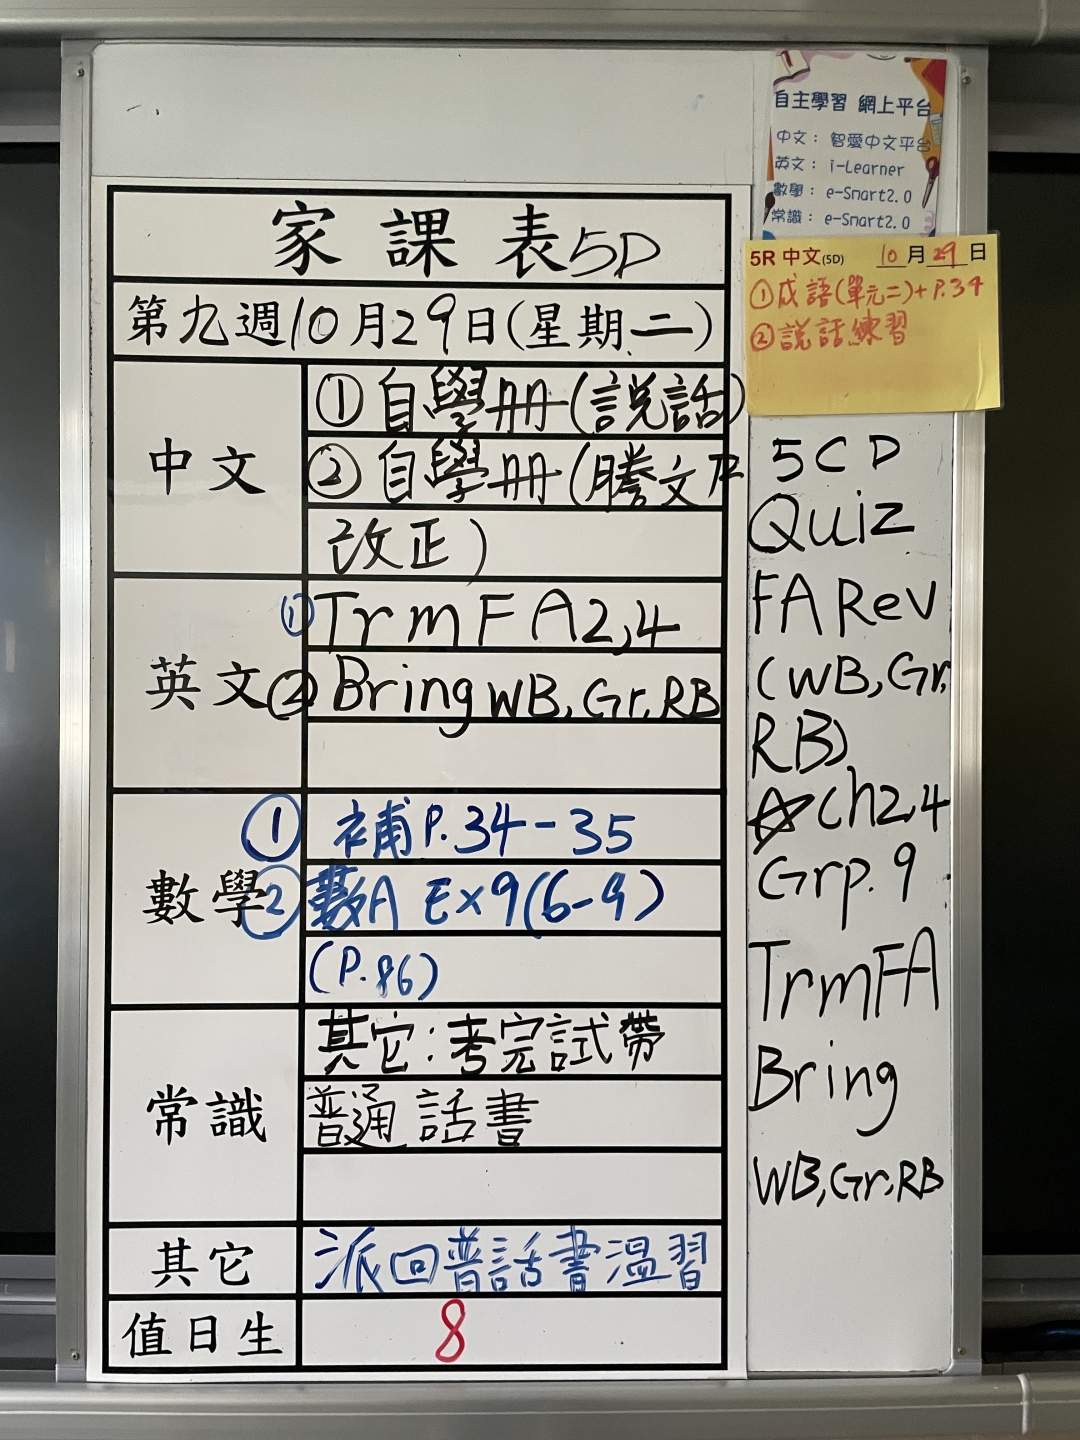 家課表5D
第九週10月29日(星期二)
中文
①自學冊(説話)
②自學冊(謄文及
改正)
英文
①Trm F A2,4
②Bring WB, Gr, RB
數學
①補P.34-35
②數A Ex9(6-9)
(P.86)
常識
其它:考完試帶
普通話書
其它
派回普話書溫習
值日生
8
自主學習 網上平台
中文: 智愛中文平台
英文: i-Learner
數學: e-Smart2.0
常識: e-Smart2.0
5R 中文(5D) 10月29日
①成語(單元二)+P.34
②説話練習
5CD
Quiz
FA Rev
(WB, Gr,
RB)
Ch2,4
Grp. 9
Trm FA
Bring
WB, Gr, RB